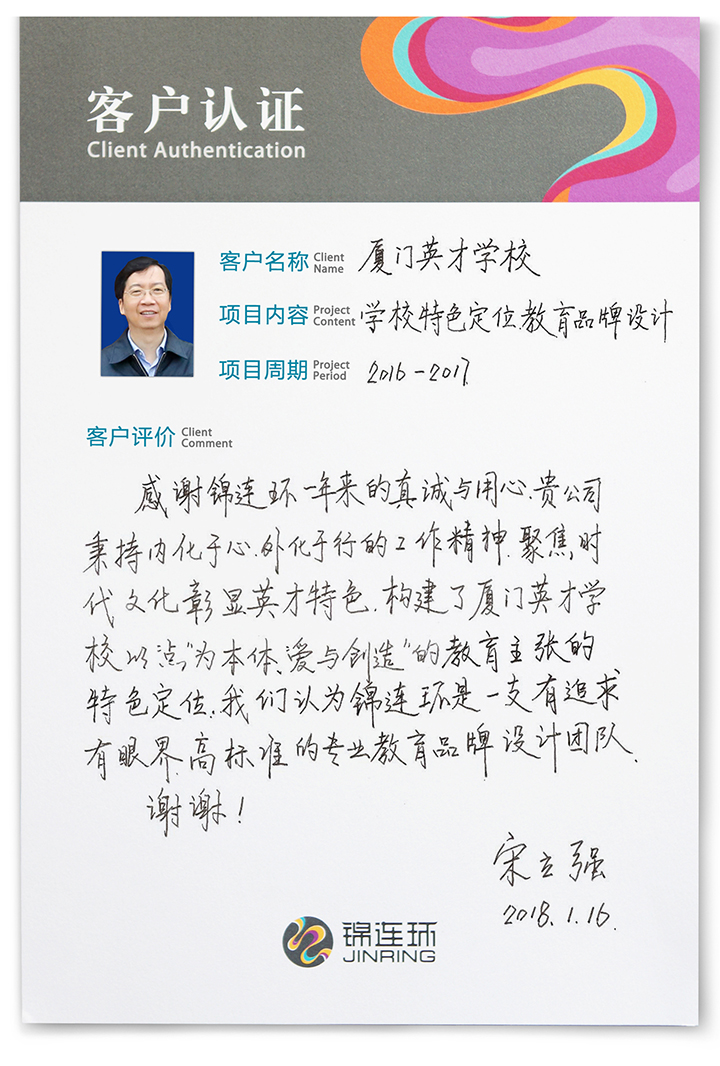 客户认证
Client Authentication
客户名称 Client Name 厦门英才学校
项目内容 Project Content 学校特色定位、教育品牌设计
项目周期 Project Period 2016-2017
客户评价 Client Comment
感谢锦连环一年来的真诚与用心.贵公司
秉持内化于心.外化于行的工作精神.聚焦时
代文化彰显英才特色.构建了厦门英才学
校以"为本体、爱与创造"的教育主张的
特色定位.我们认为锦连环是一支有追求
有眼界.高标准的专业教育品牌设计团队.
谢谢!
宋立强
2018.1.16.
锦连环
JINRING